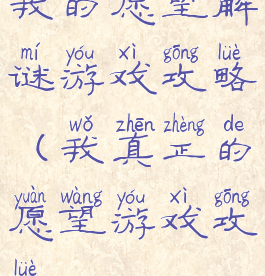 我的愿望解
mí yóu xì gōng lüè
谜游戏攻略
wǒ zhēn zhèng de
(我真正的
yuàn wàng yóu xì gōng
愿望游戏攻
lüè